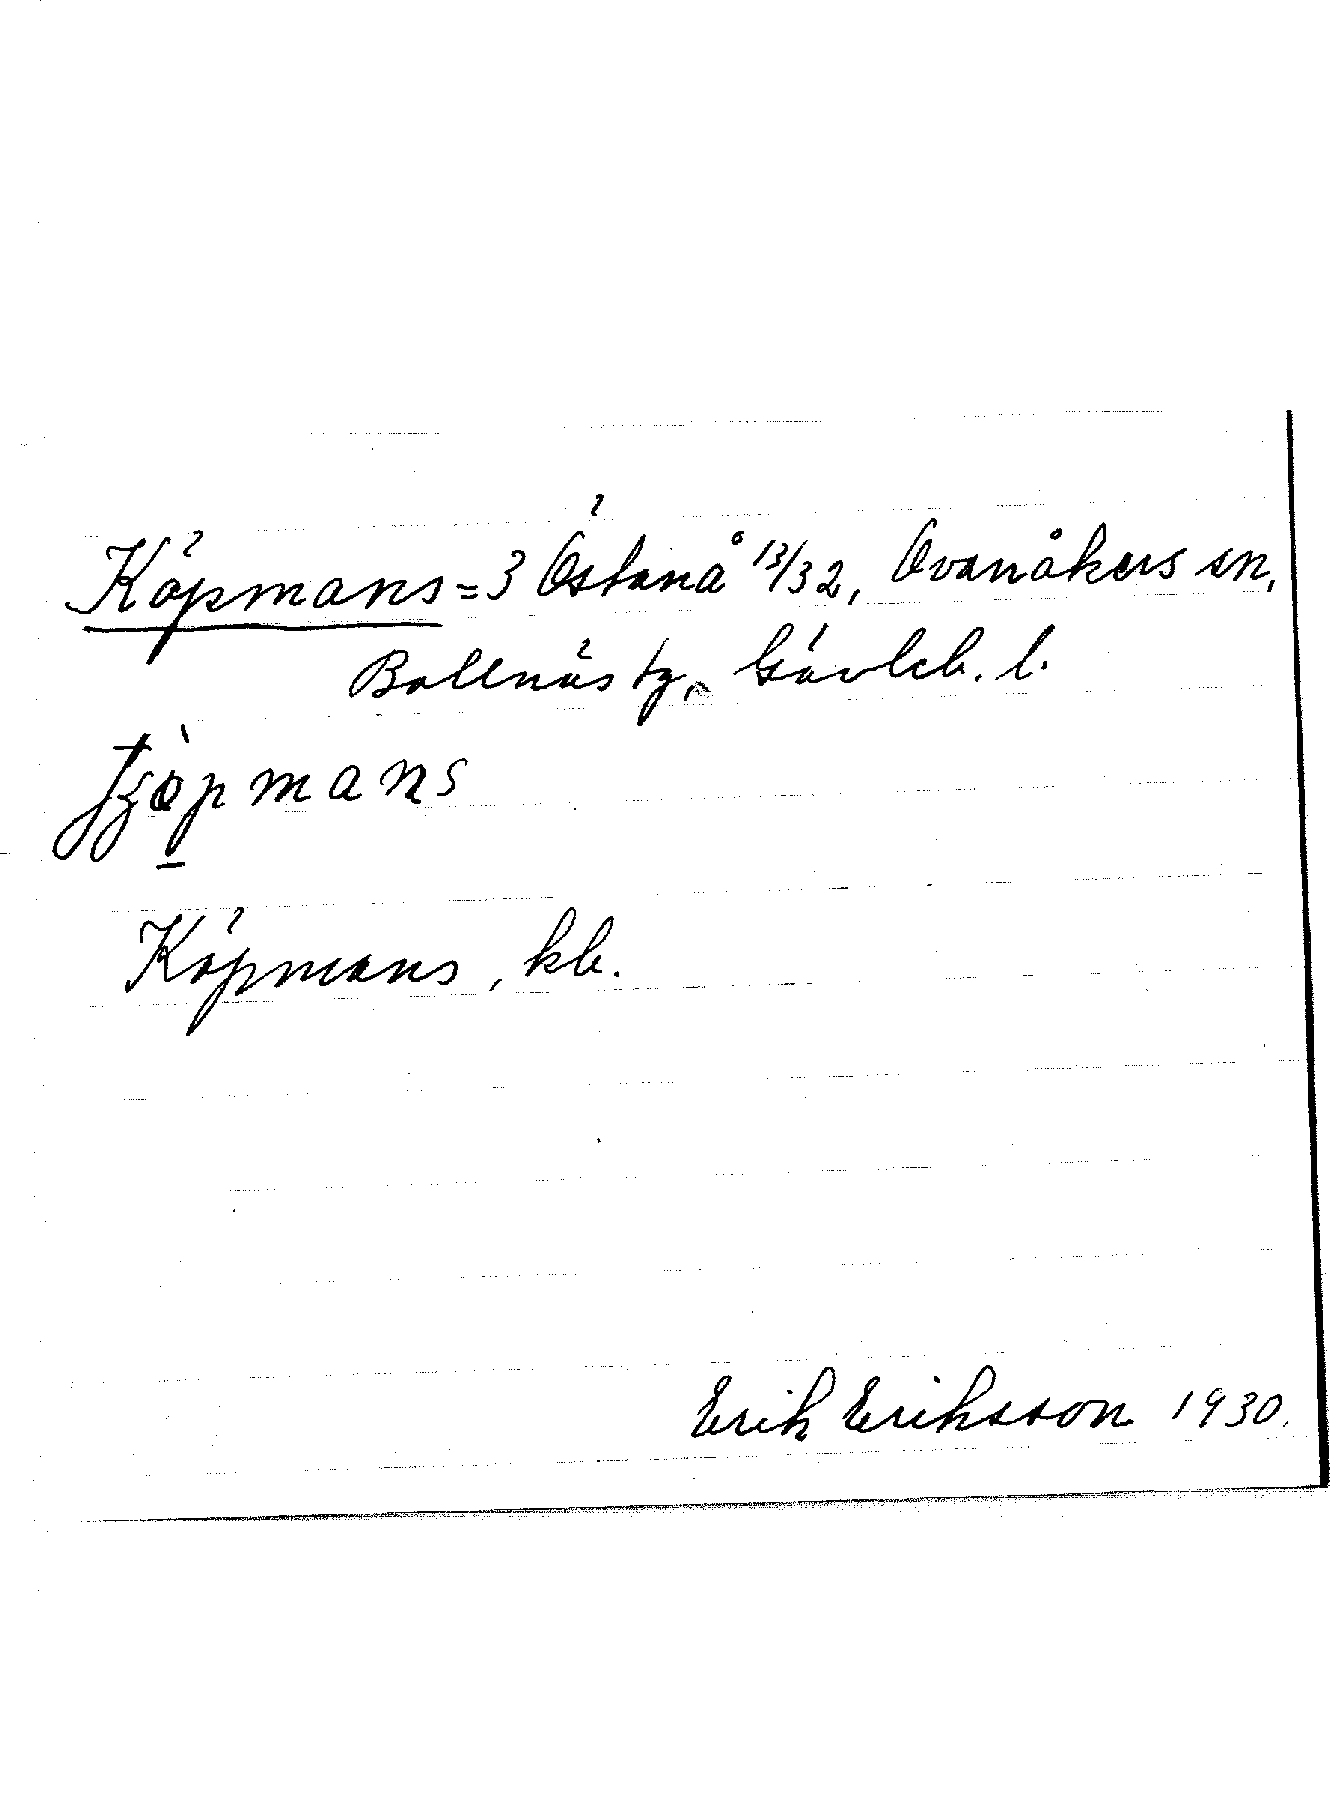 Köpmans = 3 Östanå 13/32, Ovanåkers sn,
Bollnäs tg, Gävleb. l.
Köpmans, kb.
Erik Eriksson 1930.